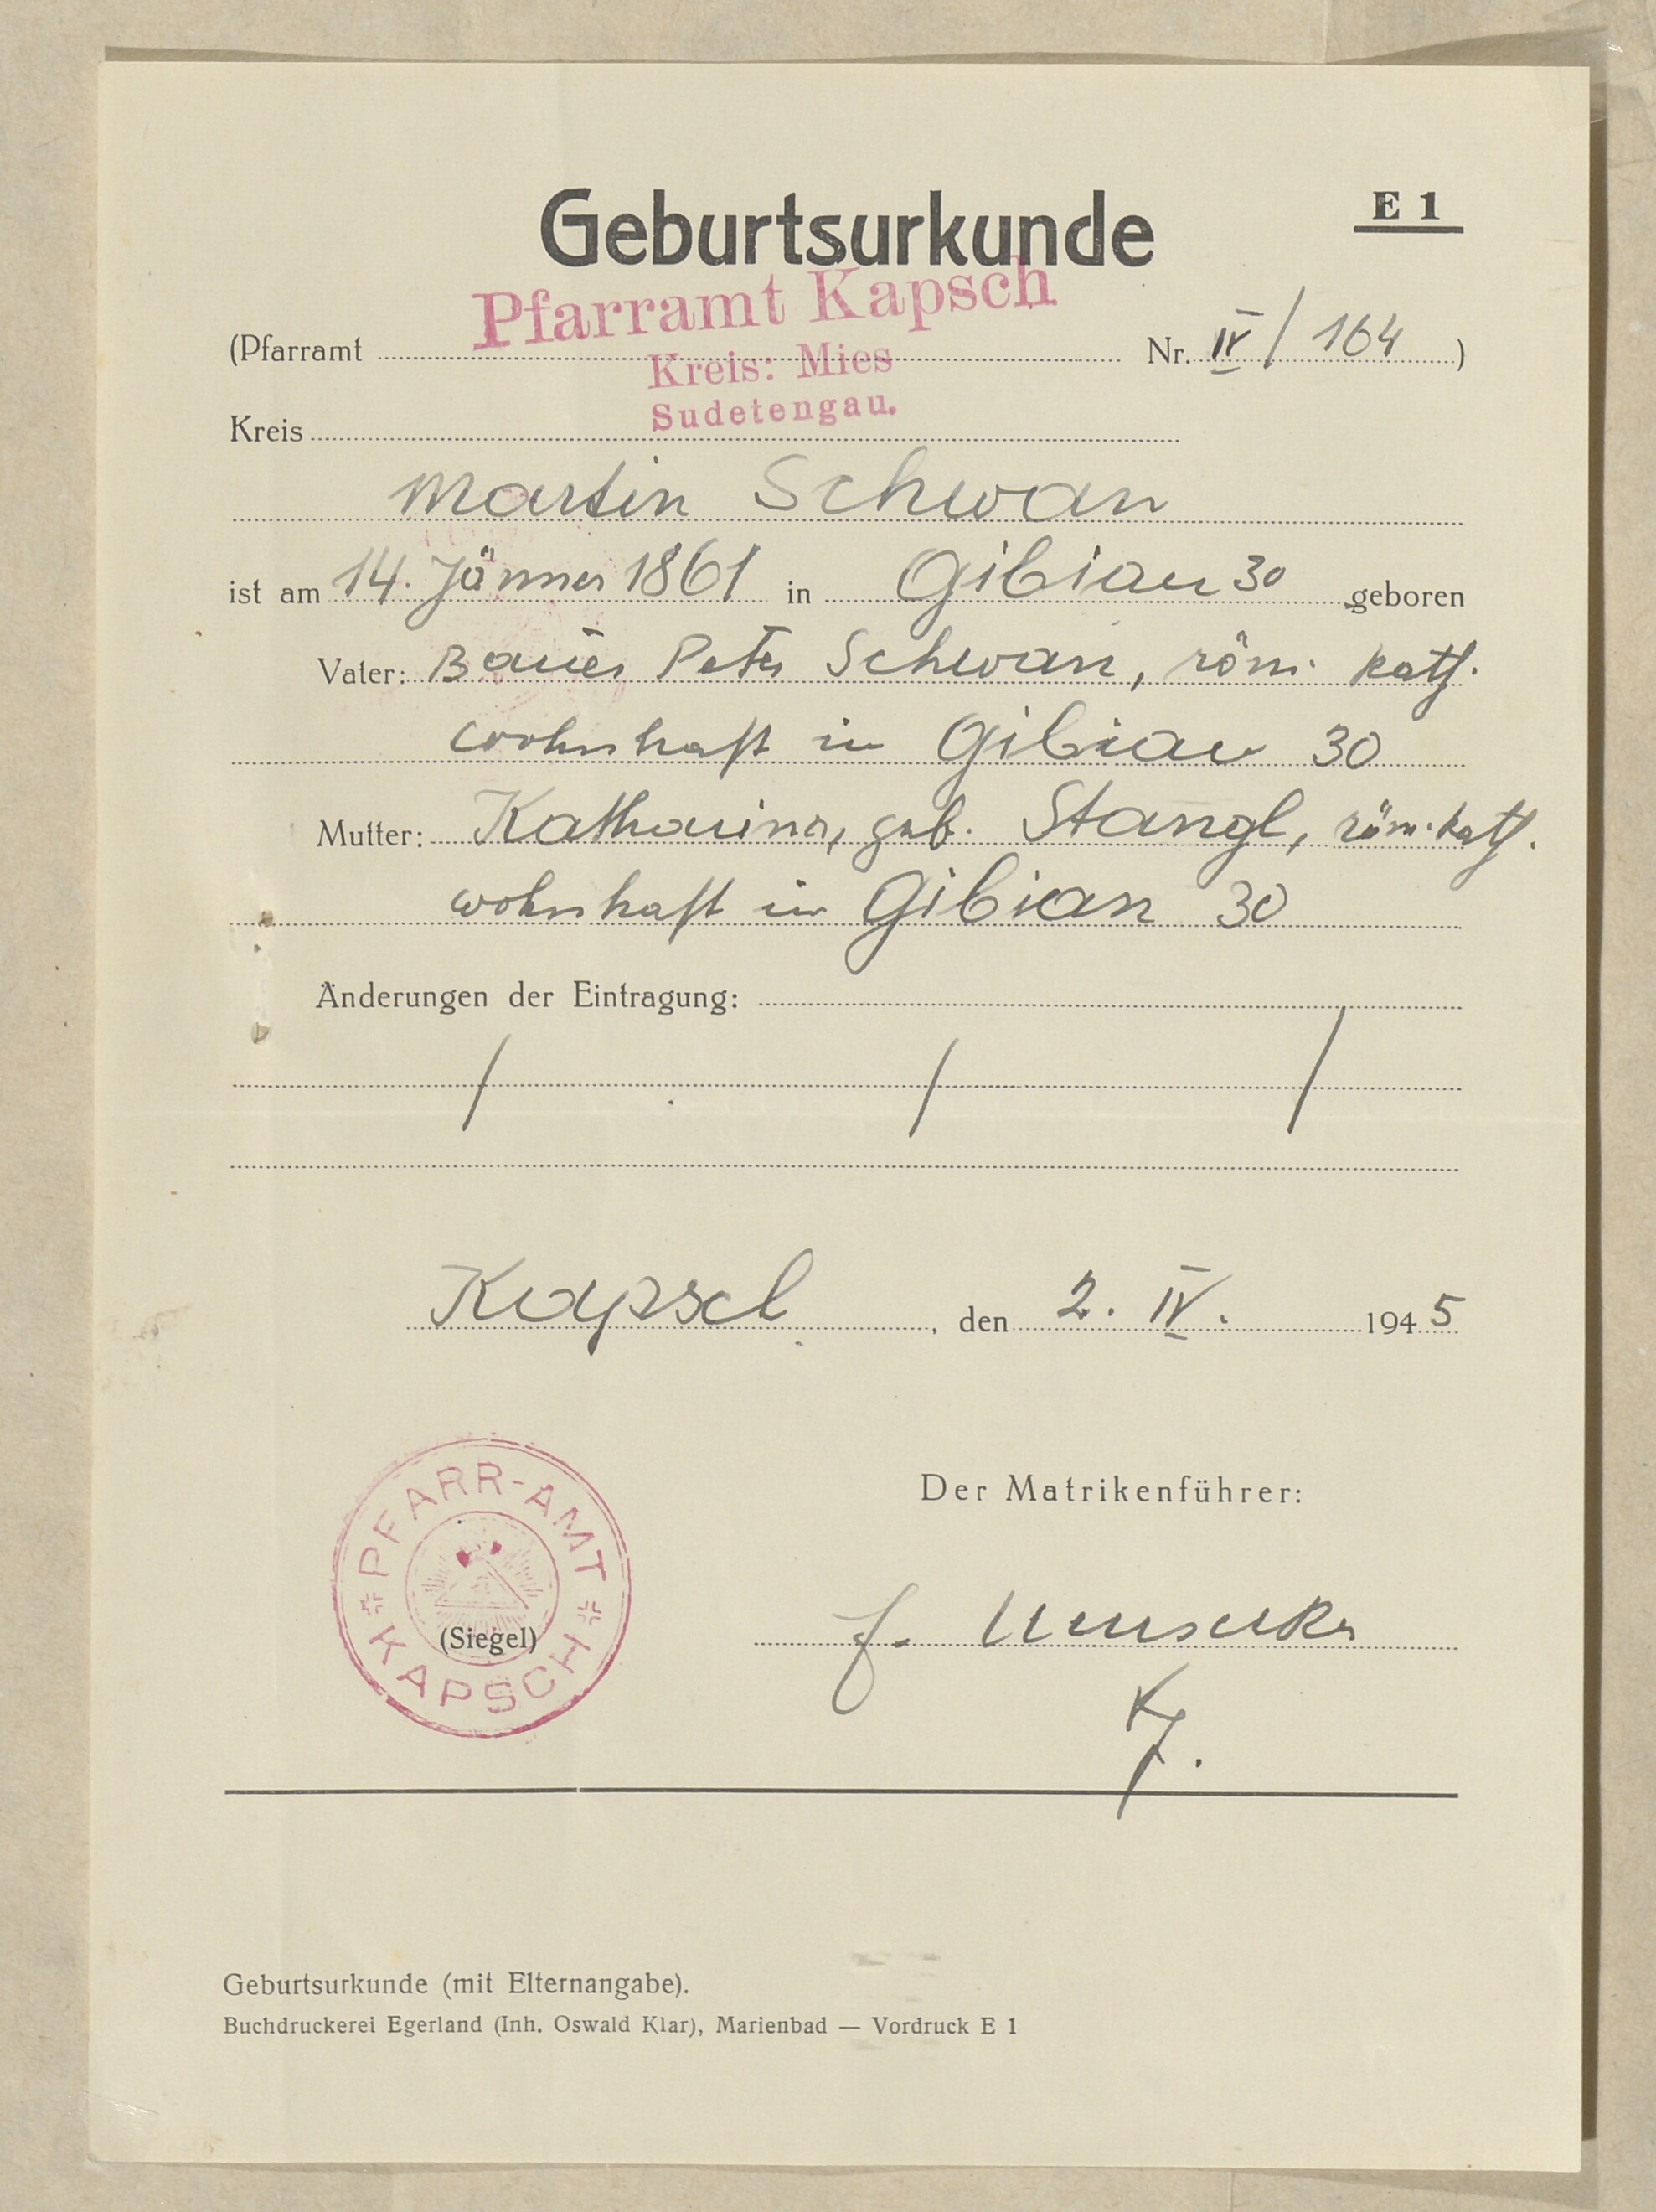 Geburtsurkunde
E 1
Pfarramt Kapsch
(Pfarramt Nr. IV / 164 )
Kreis: Mies
Sudetengau.
Kreis
Martin Schwan
ist am 14. Jänner 1861 in Gibian 30 geboren
Vater: Bauer Peter Schwan, röm. kath.
wohnhaft in Gibian 30
Mutter: Katharina, geb. Stangl, röm. kath.
wohnhaft in Gibian 30
Änderungen der Eintragung:
/ / /
Kapsch, den 2. IV. 1945
Der Matrikenführer:
PFARR-AMT
KAPSCH
(Siegel)
J.
Geburtsurkunde (mit Elternangabe).
Buchdruckerei Egerland (Inh. Oswald Klar), Marienbad — Vordruck E 1